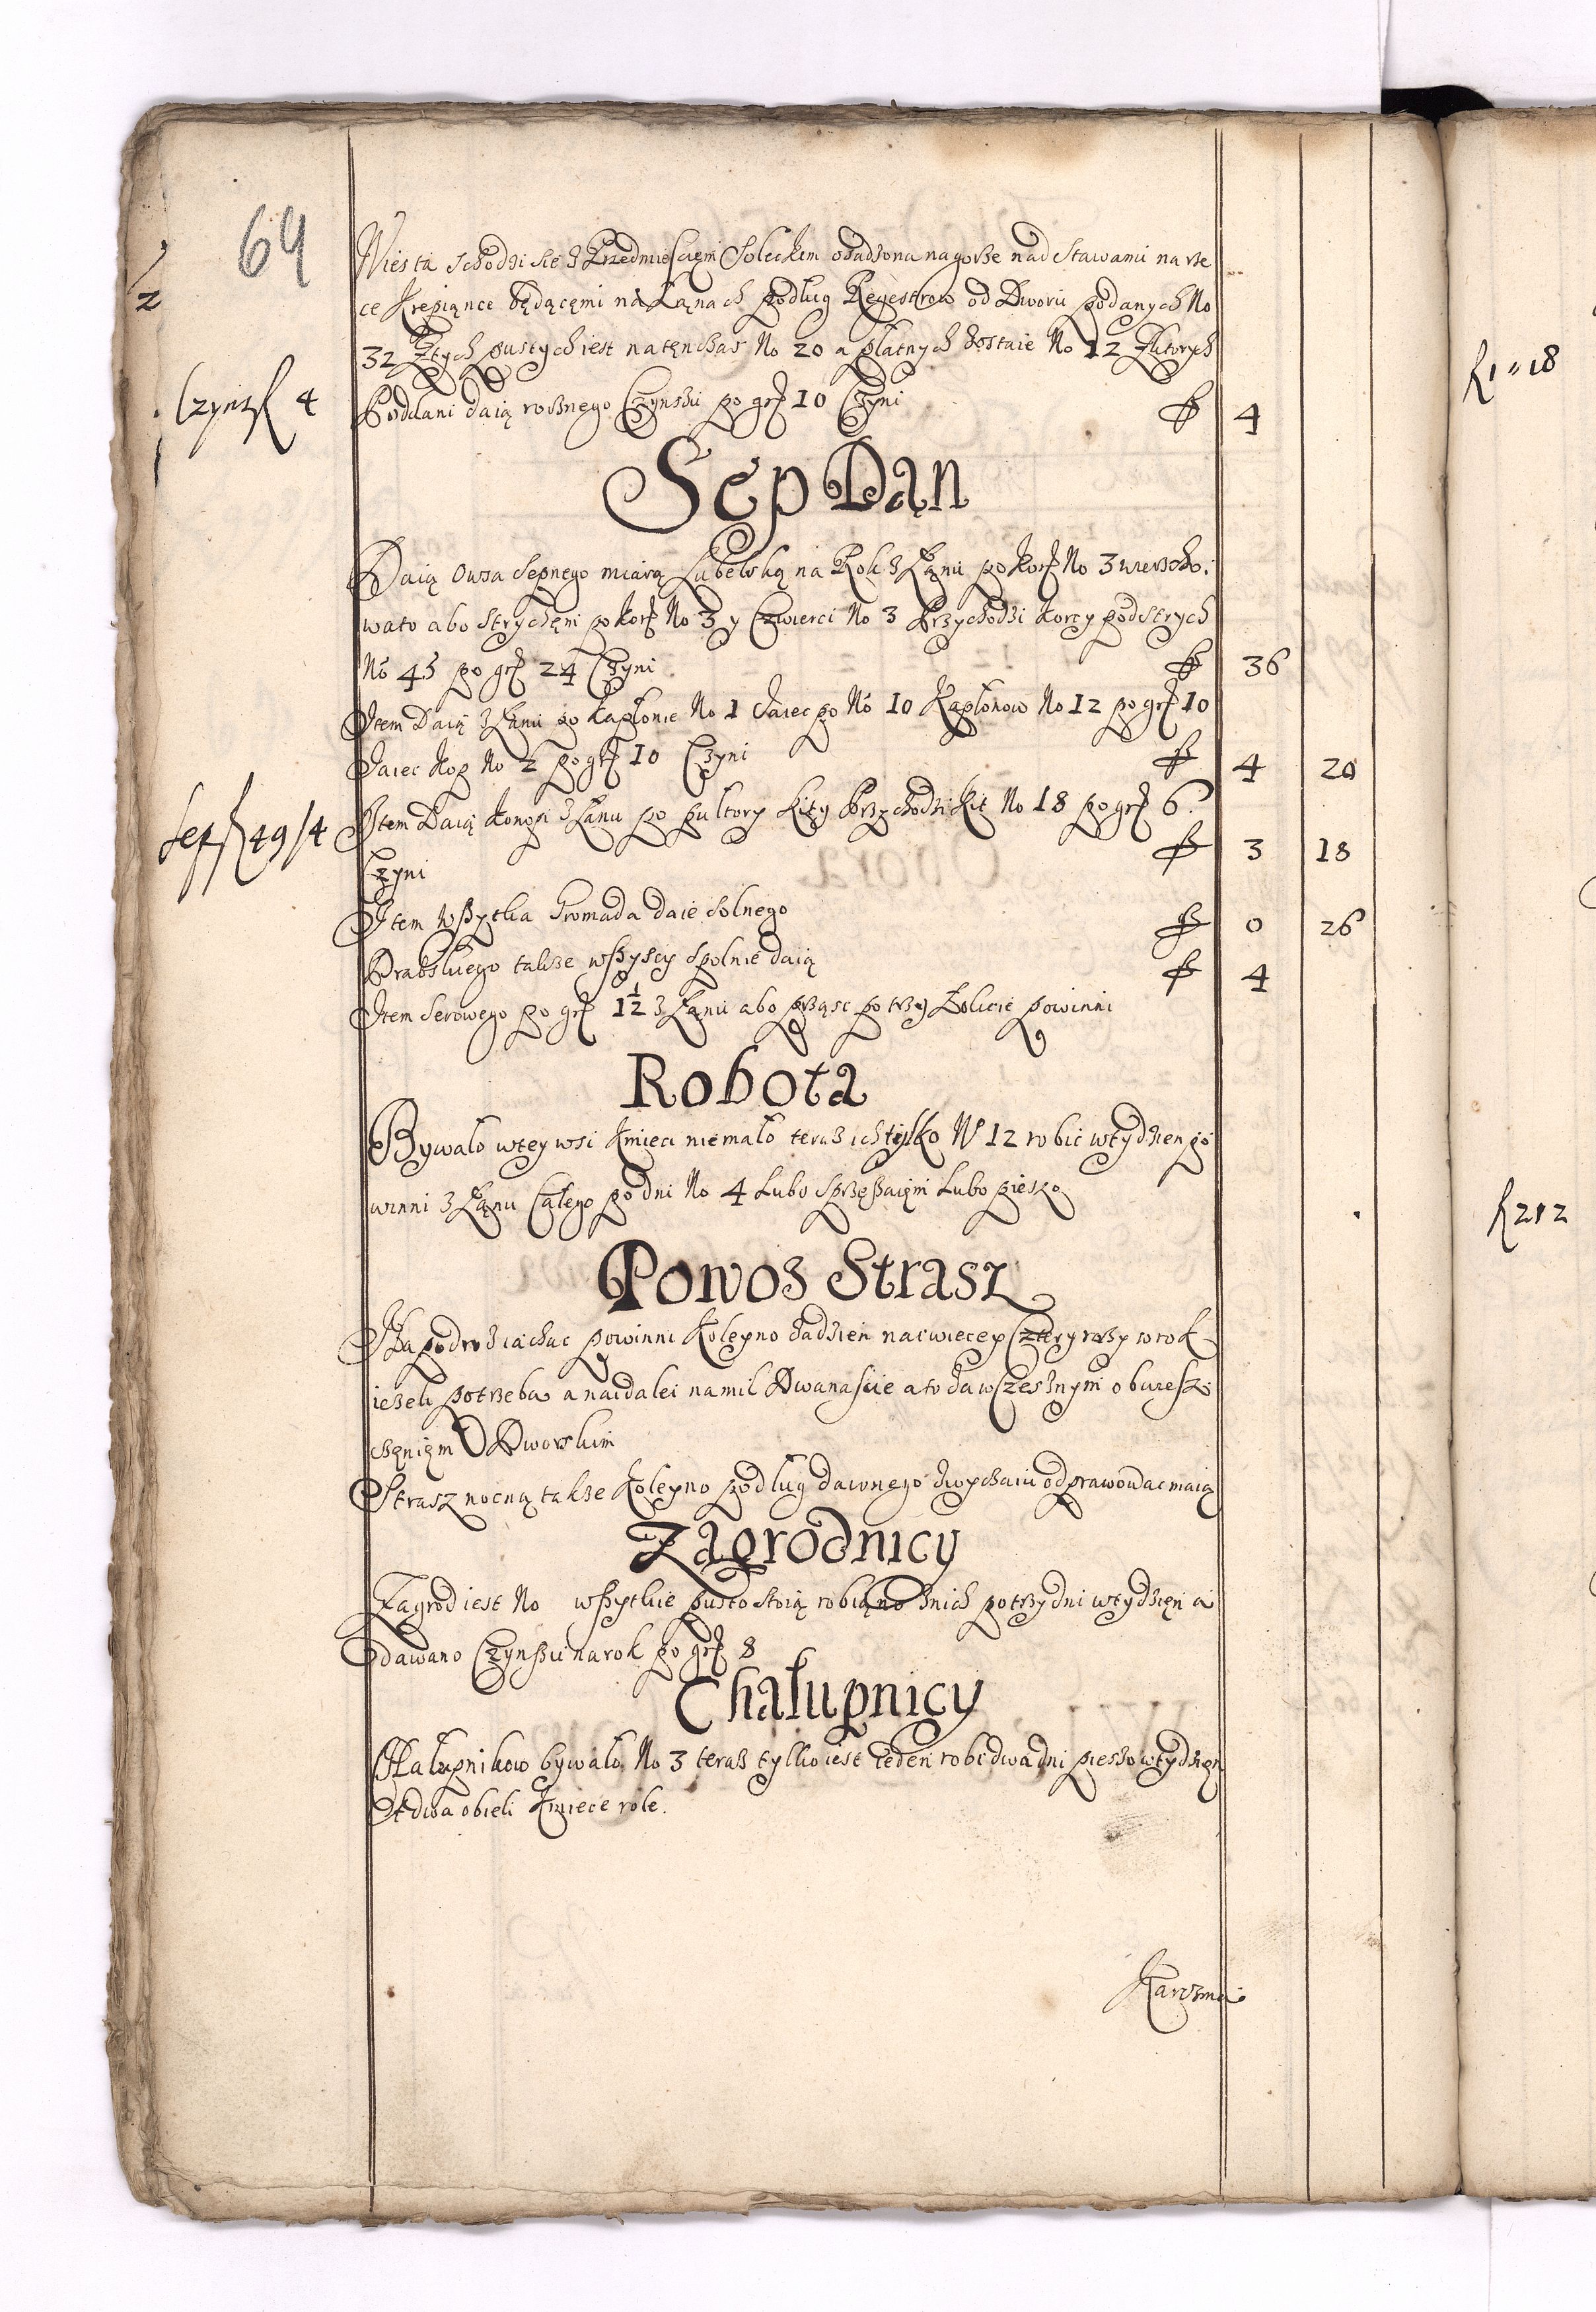 64
Wies ta schodzi sie z Przedmiesciem Soleckim osadzona na gorze nad Stawami na rze
ce Krępiance będącemi na Łanach podług Regestrow od Dworu podanych No
32 Z tych pustych iest na tenczas No 20 a płatnych zostaie No 12 z ktorych
Czynsz f 4
Poddani daią rocznego Czynszu po gr 10 Czyni f 4
Sep Dan
Daią Owsa Sepnego miarą Lubelską na Rok z Łanu po Kor No 3 wierzcho:
wato abo Strychem po Kor No 3 y Czwierci No 3 Przychodzi Korcy pod strych
No 45 po gr 24 Czyni f 36
Item Daią z Łanu po Kapłonie No 1 Jaiec po No 10 Kapłonow No 12 po gr 10
Jaiec Kop No 2 po gr 10 Czyni f 4 20
Sep f 49/4
Item Daią Konopi z Łanu po pułtory Kity Przychodzi Kit No 18 po gr 6
Czyni f 3 18
Item wszytka Gromada daie solnego f 0 26
Drabskiego także wszyscy spolnie daią f 4
Item Serowego po gr 1½ z Łanu abo prząsc po trzy Łokcie powinni
Robota
Bywało w tey wsi Kmieci niemało teraz ich tylko No 12 robic w tydzien po
winni z Łanu Całego po dni No 4 Lubo sprzężaiem Lubo pieszo
Powoz Strasz
Na podroz iachac powinni Koleyno ... naiwiecey Cztery razy w rok
ieżeli potrzeba a naidalei na mil Dwanascie a to za wczesznym obwiesz:
czeniem Dworskim
Strasz nocną także Koleyno podług dawnego zwyczaiu odprawowac maią
Zagrodnicy
Zagrod iest No wszytkie pusto stoią robiąno z nich po trzy dni w tydzien a
dawano Czynszu na rok po gr 8
Chałupnicy
Chałupnikow bywało No 3 teraz tylko iest ieden robi dwa dni pieszo w tydzien
A dwa obieli Kmiece role.
Karczma
f 1 " 18
f 2 1 2